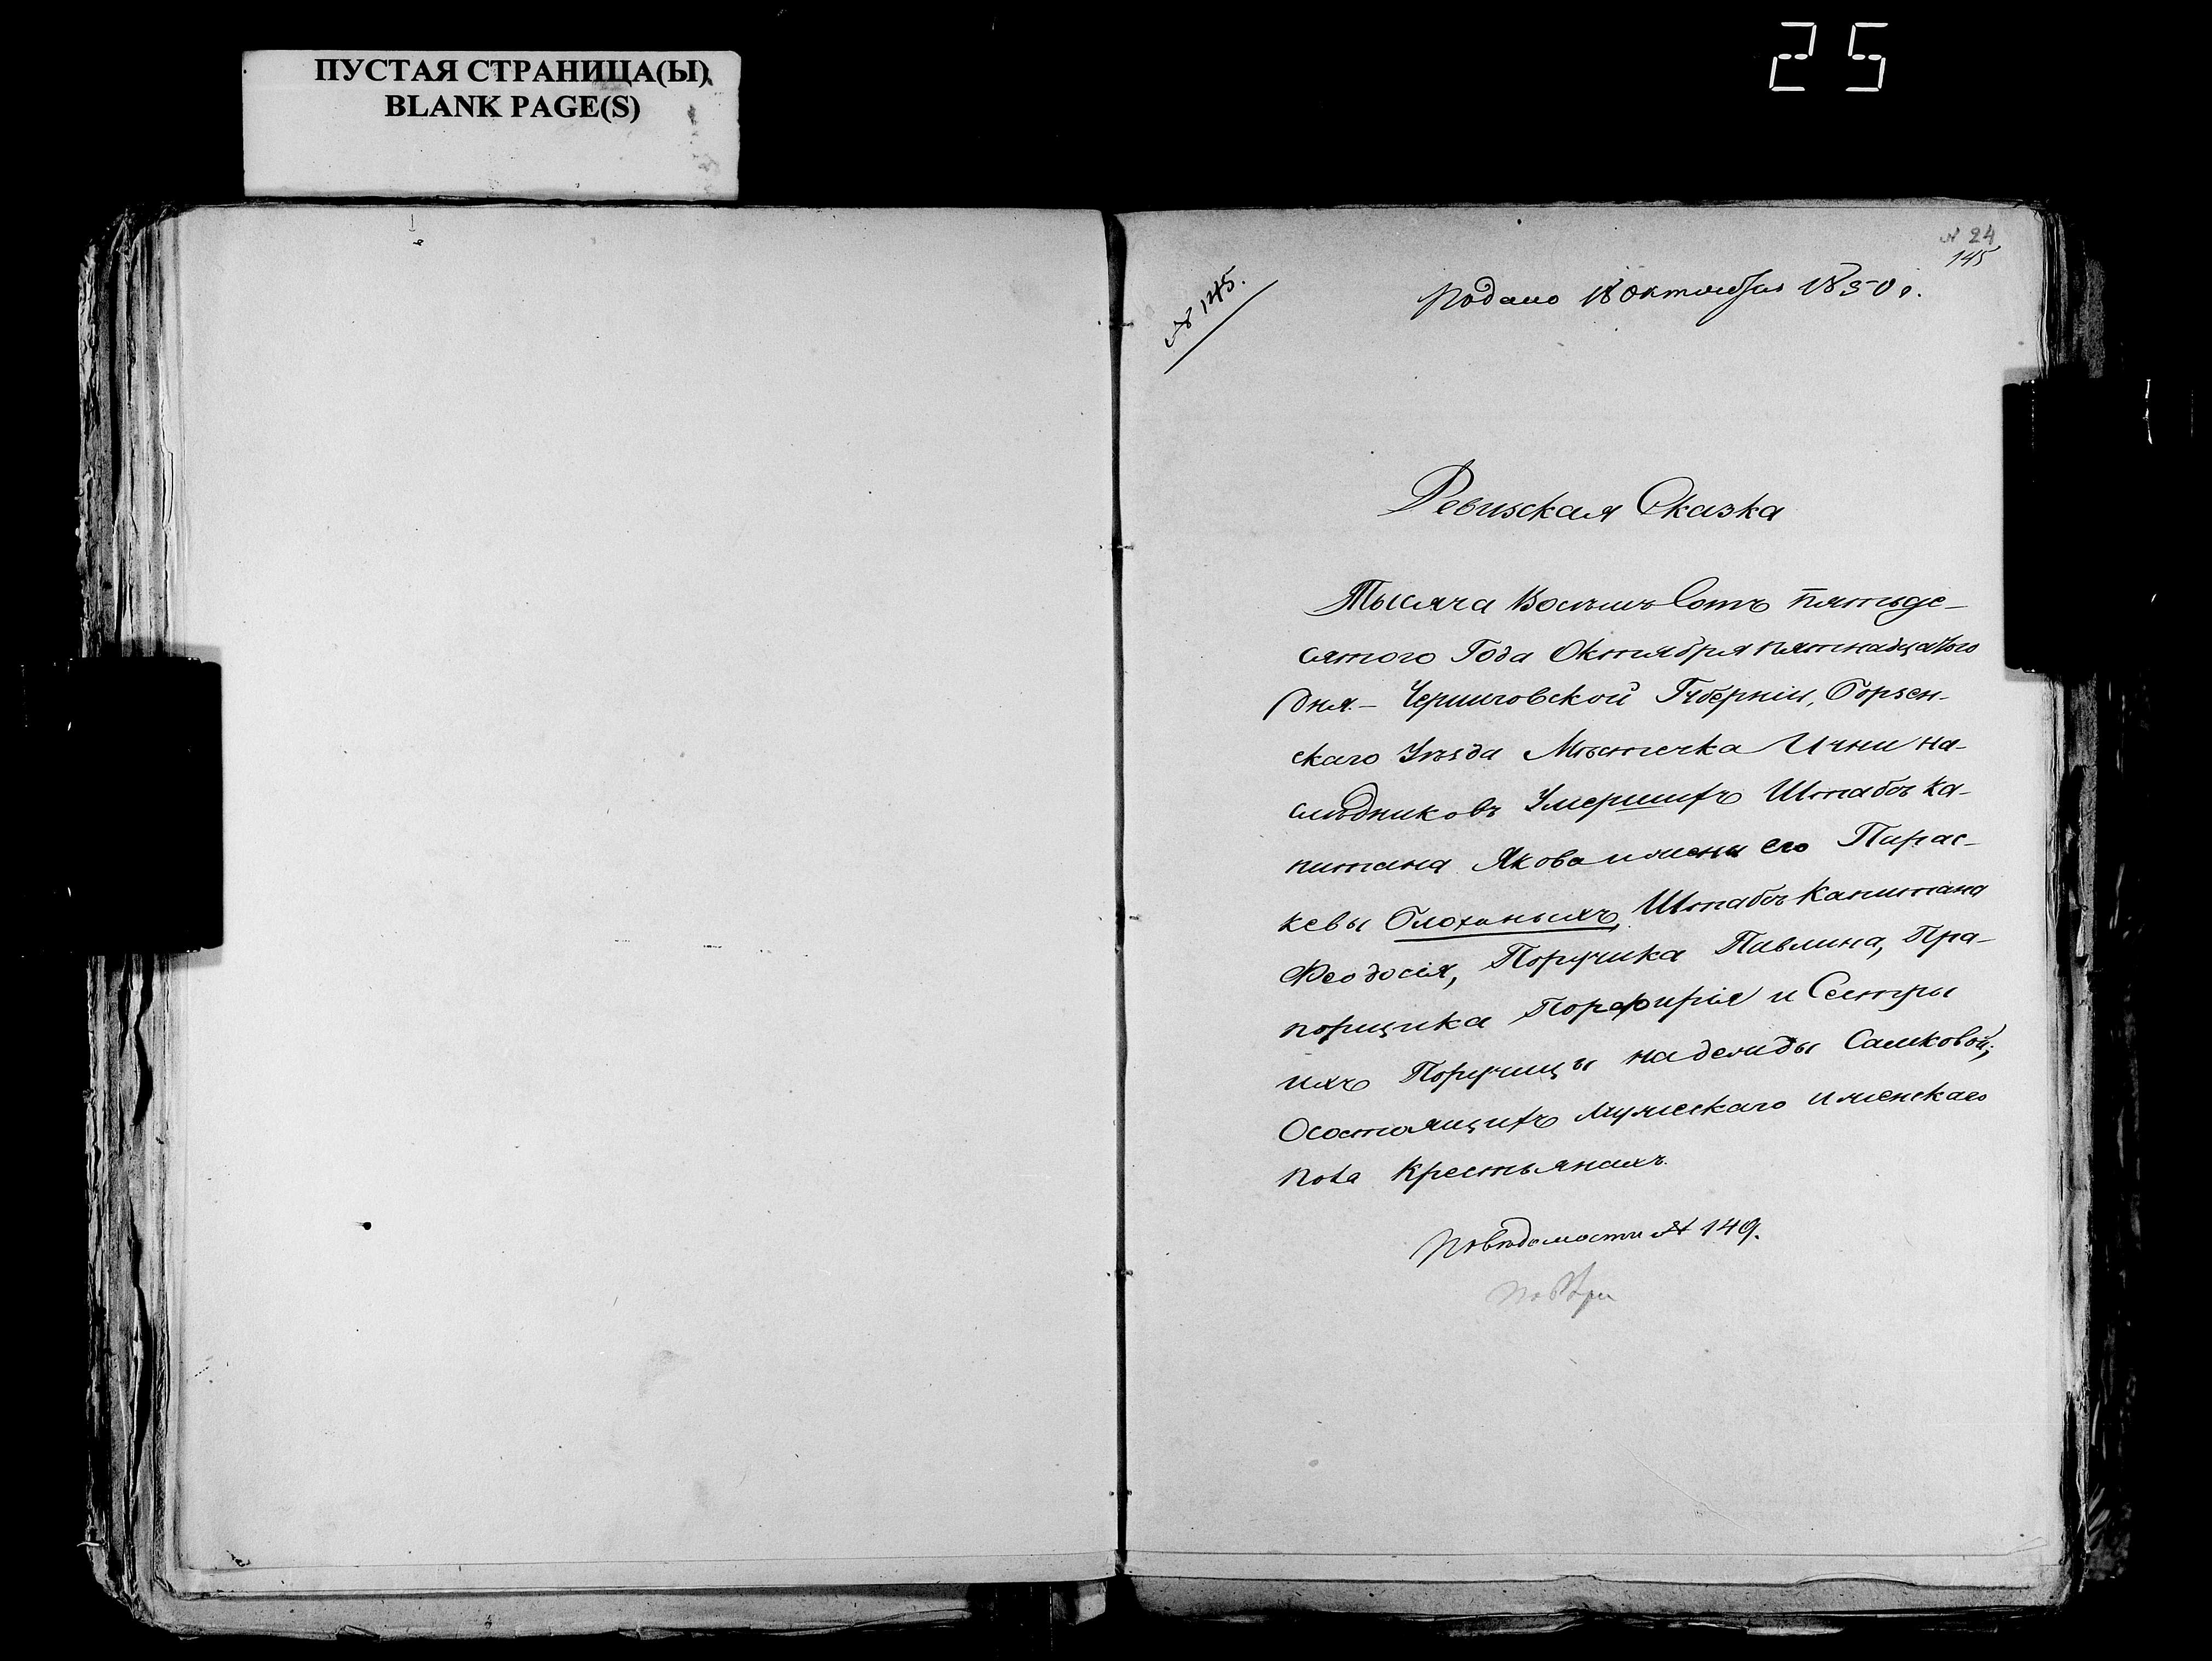 ПУСТАЯ СТРАНИЦА(Ы)
BLANK PAGE(S)
25
№ 24
145
№ 145.
Подано 18 октября 1850 г.
Ревизская Сказка
Тысяча Восемь Сотъ пятьде-
сятого Года Октября пятнадцатого
дня. – Черниговской Губерніи, Борзен-
скаго Уѣзда Мѣстечка Ични на-
слѣдниковъ Умершихъ Штабсъ ка-
питана Якова и жены его Парас-
кевы Штабсъ Капитана
Феодосія, Поручика Павлина, Пра-
порщика Порфирія и Сестры
ихъ Поручицы надежды
О состоящихъ мужескаго и женскаго
пола Крестьянахъ.
По вѣдомости № 149.